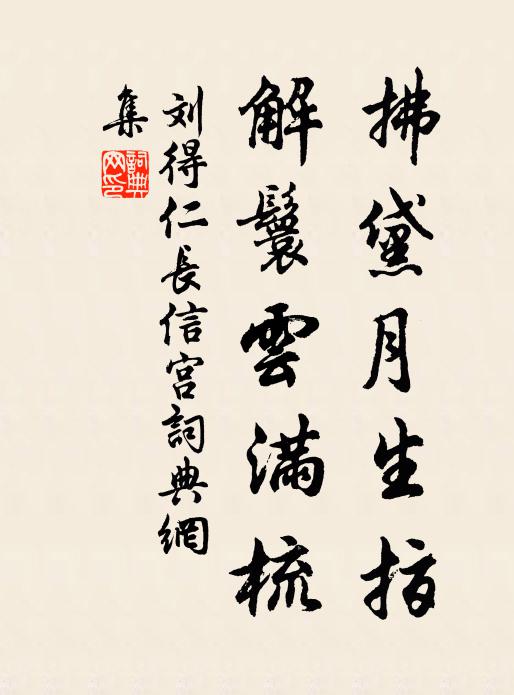 拂黛月生指
解鬟雲滿梳
刘得仁長信宮詞典網
集
詞典網印